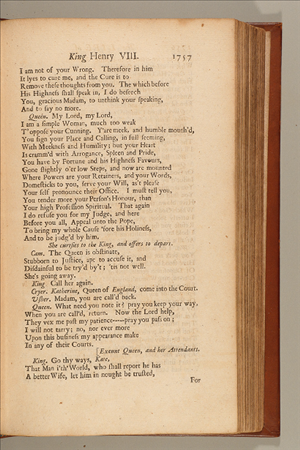 King Henry VIII. 1757
I am not of your Wrong. Therefore in him
It lyes to cure me, and the Cure is to
Remove these thoughts from you. The which before
His Highness shall speak in, I do beseech
You, gracious Madam, to unthink your speaking,
And to say no more.
Queen. My Lord, my Lord,
I am a simple Woman, much too weak
T'oppose your Cunning. Y'are meek, and humble mouth'd,
You sign your Place and Calling, in full seeming,
With Meekness and Humility; but your Heart
Is cramm'd with Arrogance, Spleen and Pride,
You have by Fortune and his Highness Favours,
Gone slightly o'er low Steps, and now are mounted
Where Powers are your Retainers, and your Words,
Domesticks to you, serve your Will, as't please
Your self pronounce their Office. I must tell you,
You tender more your Person's Honour, than
Your high Profession Spiritual. That again
I do refuse you for my Judge, and here
Before you all, Appeal unto the Pope,
To bring my whole Cause 'fore his Holiness,
And to be judg'd by him.
She curtsies to the King, and offers to depart.
Cam. The Queen is obstinate,
Stubborn to Justice, apt to accuse it, and
Disdainful to be try'd by't; 'tis not well.
She's going away.
King. Call her again.
Cryer. Katherine, Queen of England, come into the Court.
Usher. Madam, you are call'd back.
Queen. What need you note it? pray you keep your way.
When you are call'd, return. Now the Lord help,
They vex me past my patience-----pray you pass on;
I will not tarry; no, nor ever more
Upon this business my appearance make
In any of their Courts.
[Exeunt Queen, and her Attendants.
King. Go thy ways, Kate,
That Man i'th' World, who shall report he has
A better Wife, let him in nought be trusted,
For